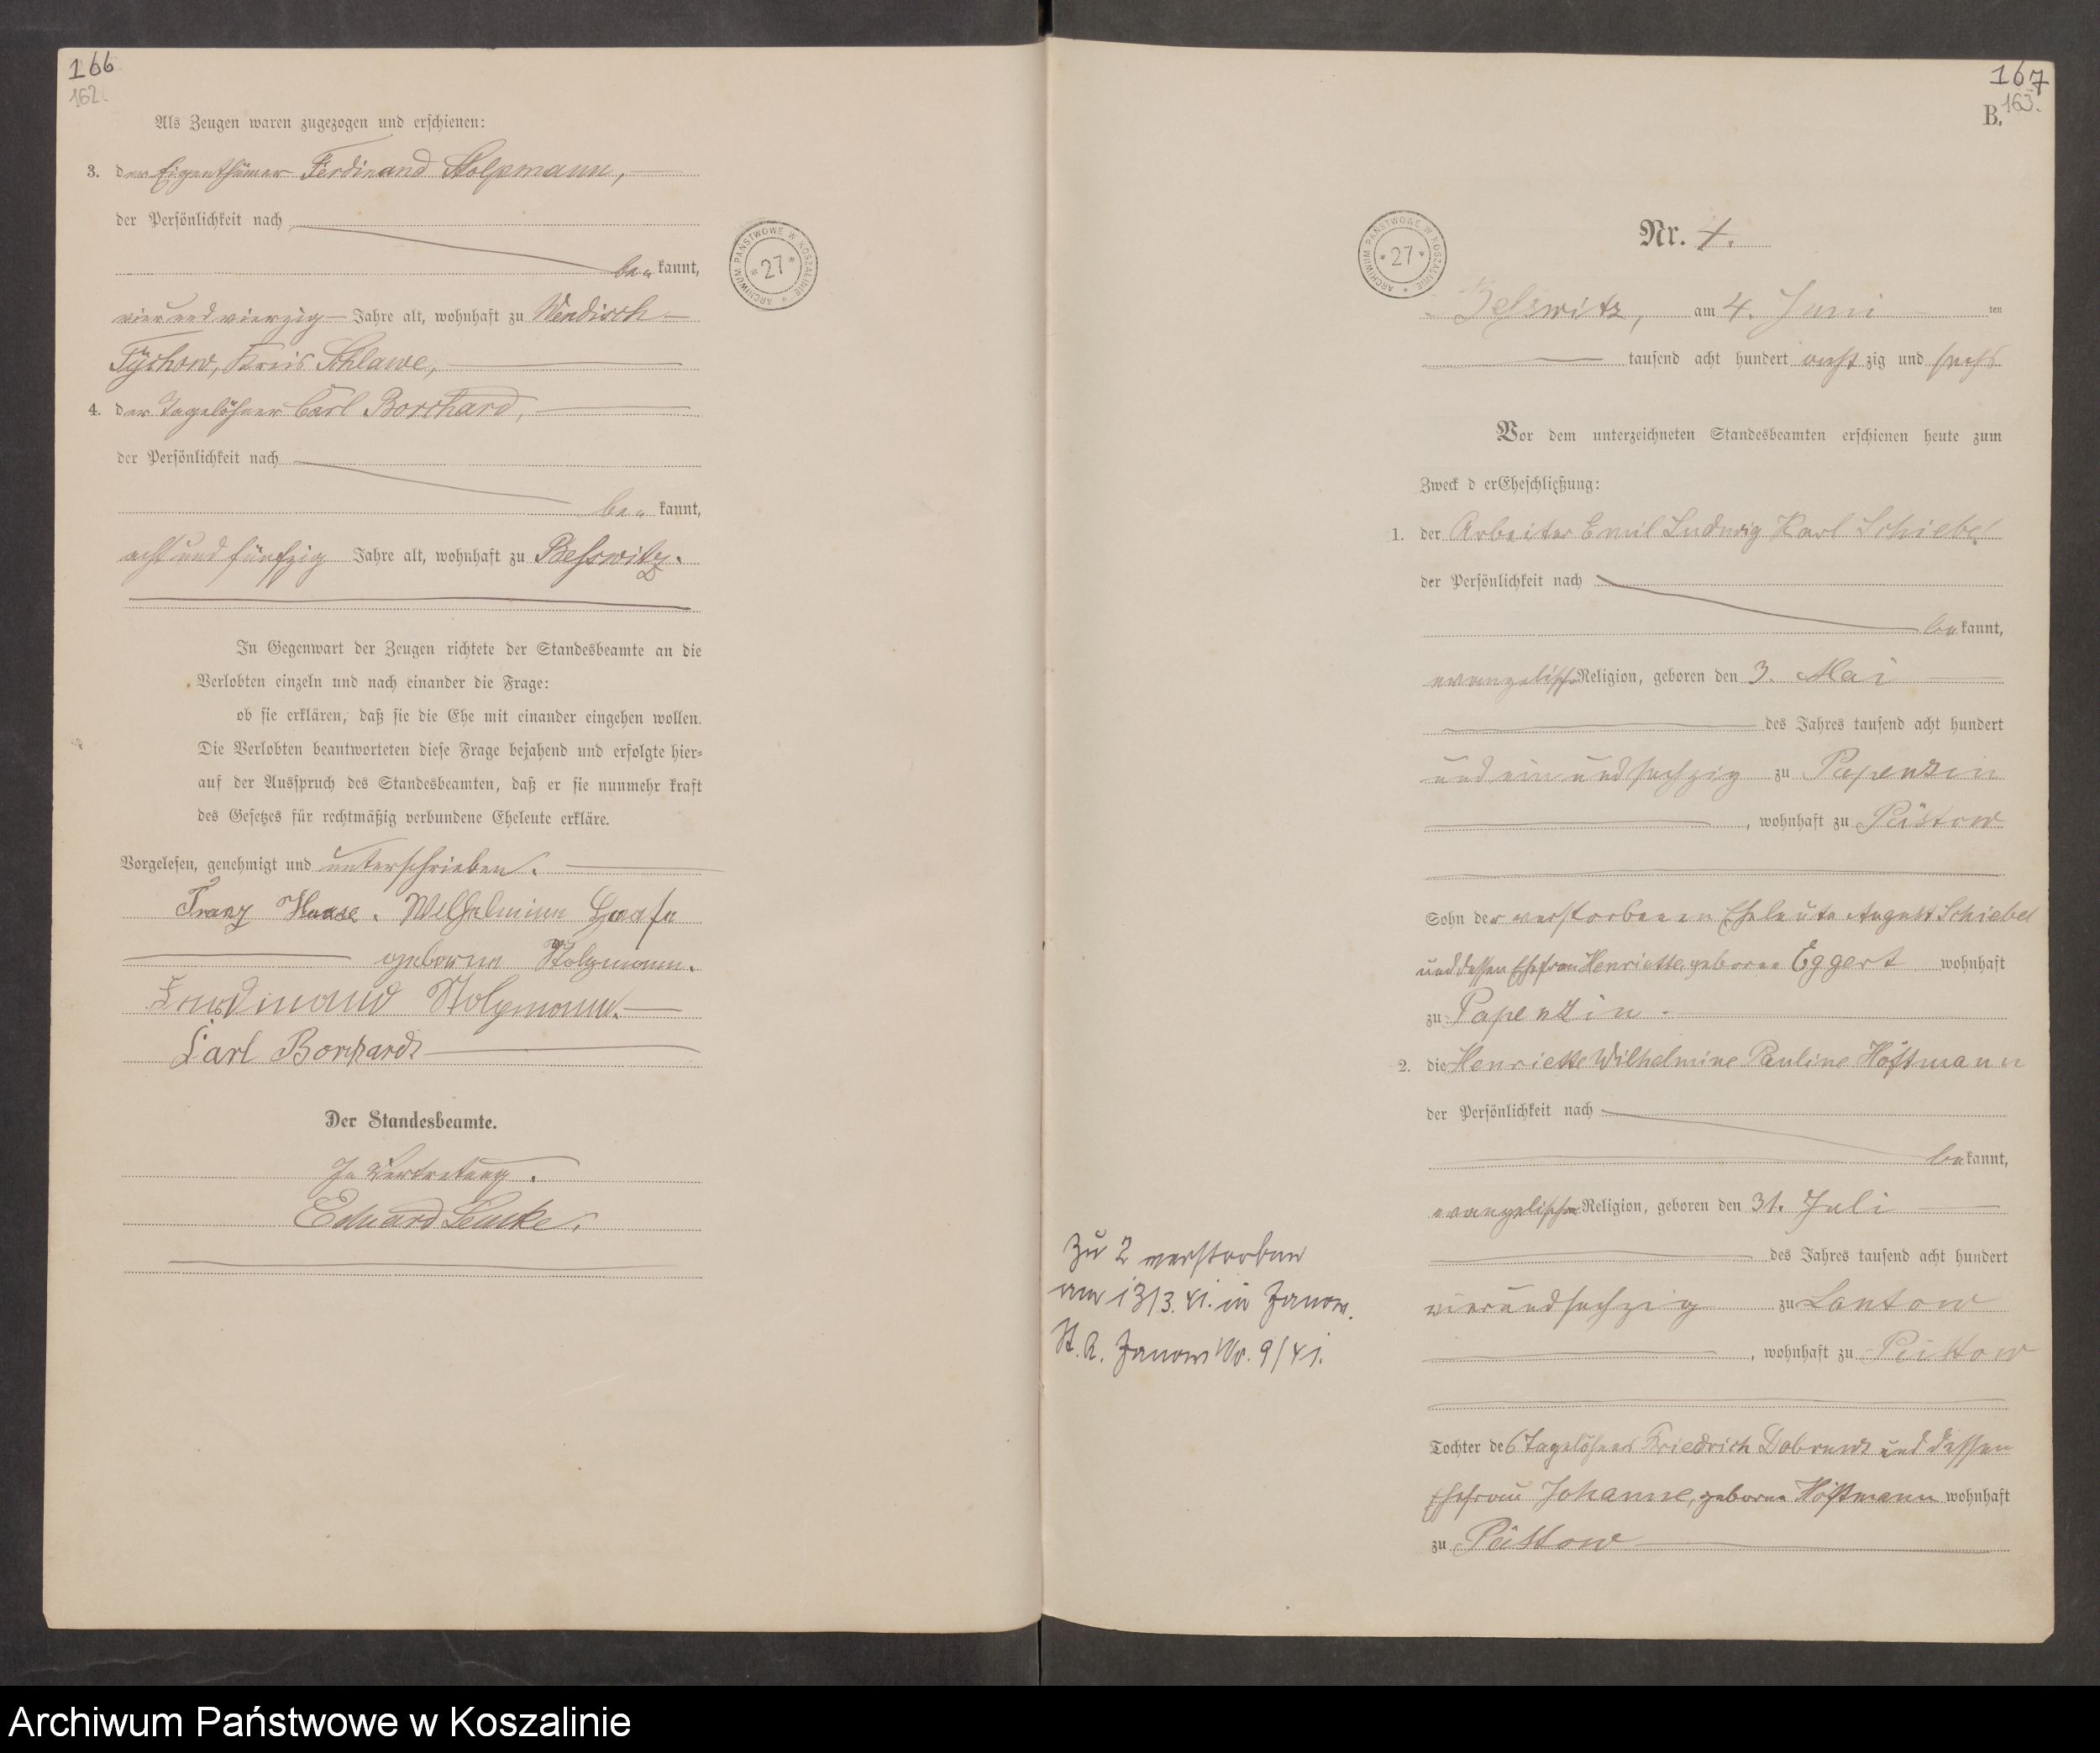 166
162.
Als Zeugen waren zugezogen und erschienen:
3. der Eigenthümer Ferdinand Stolpmann,
der Persönlichkeit nach
be- kannt,
vier und vierzig Jahre alt, wohnhaft zu Wendisch
Tychow, Kreis Schlawe,
4. der Tagelöhner Carl Borchard,
der Persönlichkeit nach
be- kannt,
acht und fünfzig Jahre alt, wohnhaft zu Besswitz.
In Gegenwart der Zeugen richtete der Standesbeamte an die
Verlobten einzeln und nach einander die Frage:
ob sie erklären, daß sie die Ehe mit einander eingehen wollen.
Die Verlobten beantworteten diese Frage bejahend und erfolgte hier-
auf der Ausspruch des Standesbeamten, daß er sie nunmehr kraft
des Gesetzes für rechtmäßig verbundene Eheleute erkläre.
Vorgelesen, genehmigt und unterschrieben.
Franz Haase. Wilhelmine Haase
geborne Stolpmann.
Ferdinand Stolpmann.
Carl Borchardt
Der Standesbeamte.
In Vertretung.
Eduard Lemke.
ARCHIWUM PAŃSTWOWE W KOSZALINIE
* 27 *
167
163.
B.
ARCHIWUM PAŃSTWOWE W KOSZALINIE
* 27 *
Nr. 4.
Besswitz, am 4. Juni ten
tausend acht hundert acht zig und sechs
Vor dem unterzeichneten Standesbeamten erschienen heute zum
Zweck d er Eheschließung:
1. der Arbeiter Emil Ludwig Karl Schiebel
der Persönlichkeit nach
be kannt,
evangelischer Religion, geboren den 3. Mai
des Jahres tausend acht hundert
und ein und sechzig zu Papenzin
, wohnhaft zu Püstow
Sohn der verstorbenen Eheleute August Schiebel
und dessen Ehefrau Henriette, geborne Eggert wohnhaft
zu Papenzin.
2. die Henriette Wilhelmine Pauline Höftmann
der Persönlichkeit nach
be kannt,
evangelischer Religion, geboren den 31. Juli
des Jahres tausend acht hundert
vierundsechzig zu Lantow
, wohnhaft zu Püstow
Tochter des Tagelöhners Friedrich und dessen
Ehefrau Johanne, geborne Höftmann wohnhaft
zu Püstow
Zu 2 verstorben
am 13/3. 41. in Zanow.
St. A. Zanow Nr. 9/41.
Archiwum Państwowe w Koszalinie